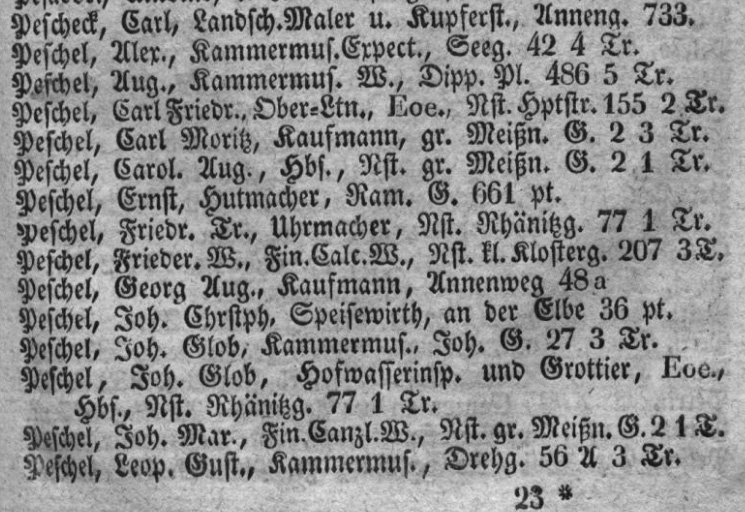 Pescheck, Carl, Landsch.Maler u. Kupferst., Anneng. 733.
Peschel, Alex., Kammermus.Expect., Seeg. 42 4 Tr.
Peschel, Aug., Kammermus. W., Dipp. Pl. 486 5 Tr.
Peschel, Carl Friedr., Ober=Ltn., Eoe., Nst. Hptstr. 155 2 Tr.
Peschel, Carl Moritz, Kaufmann, gr. Meißn. G. 2 3 Tr.
Peschel, Carol. Aug., Hbs., Nst. gr. Meißn. G. 2 1 Tr.
Peschel, Ernst, Hutmacher, Ram. G. 661 pt.
Peschel, Friedr. Tr., Uhrmacher, Nst. Rhänitzg. 77 1 Tr.
Peschel, Frieder. W., Fin.Calc.W., Nst. kl. Klosterg. 207 3 T.
Peschel, Georg Aug., Kaufmann, Annenweg 48 a
Peschel, Joh. Chrstph, Speisewirth, an der Elbe 36 pt.
Peschel, Joh. Glob, Kammermus., Joh. G. 27 3 Tr.
Peschel, Joh. Glob, Hofwasserinsp. und Grottier, Eoe.,
Hbs., Nst. Rhänitzg. 77 1 Tr.
Peschel, Joh. Mar., Fin.Canzl.W., Nst. gr. Meißn. G. 2 1 T.
Peschel, Leop. Gust., Kammermus., Drehg. 56 A 3 Tr.
23 *